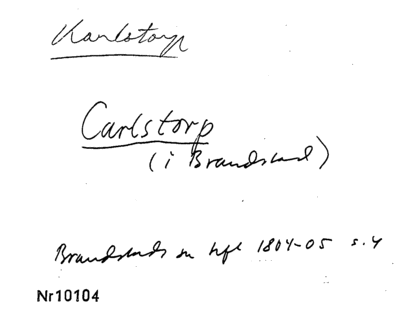 Karlstorp
Carlstorp
(i Brandstad)
Brandstads sn hfl 1804-05 s.4
Nr10104